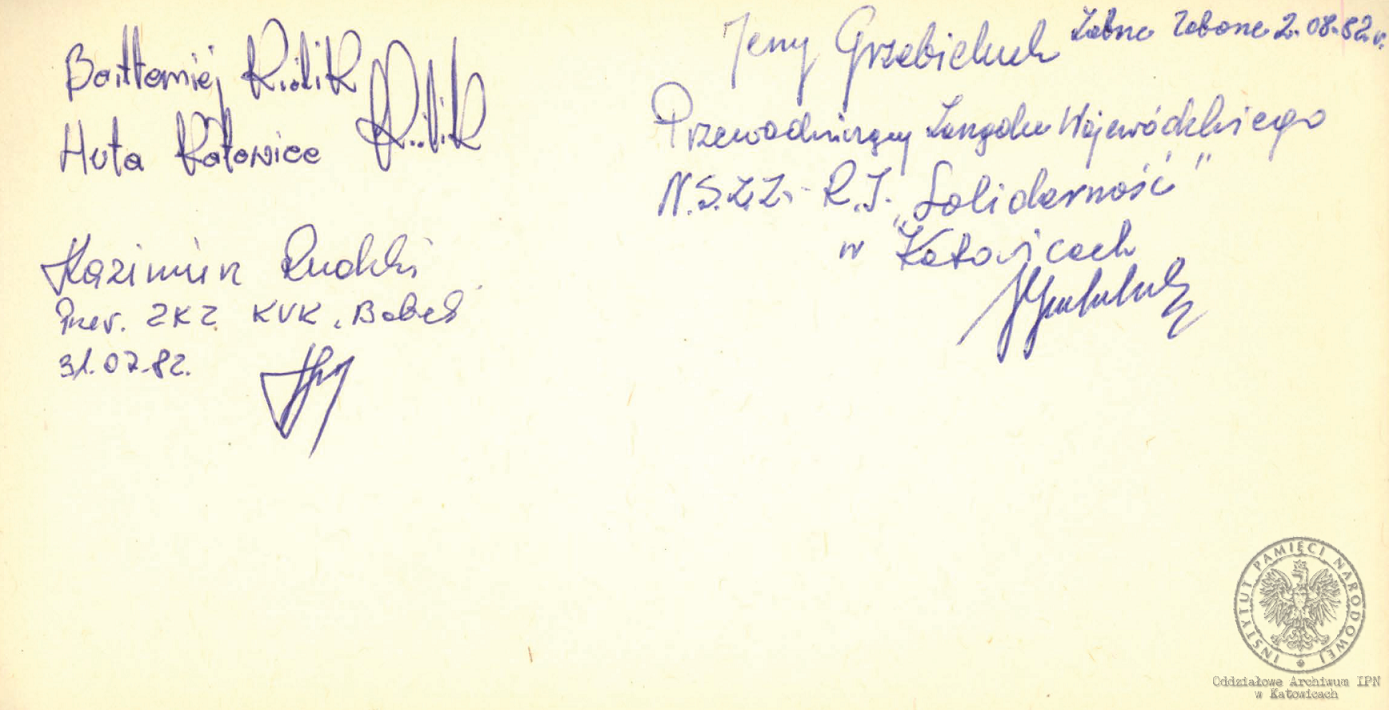 Bartłomiej Królik
Huta Katowice Królik
Kazimierz Rudzki
Przew. ZKZ KWK "Bobrek"
31.07.82.
Jerzy Grzebieluch 2.08.82 r.
Przewodniczący Zarządu Wojewódzkiego
N.S.Z.Z. R.I. "Solidarność"
w Katowicach
INSTYTUT PAMIĘCI NARODOWEJ
Oddziałowe Archiwum IPN
w Katowicach